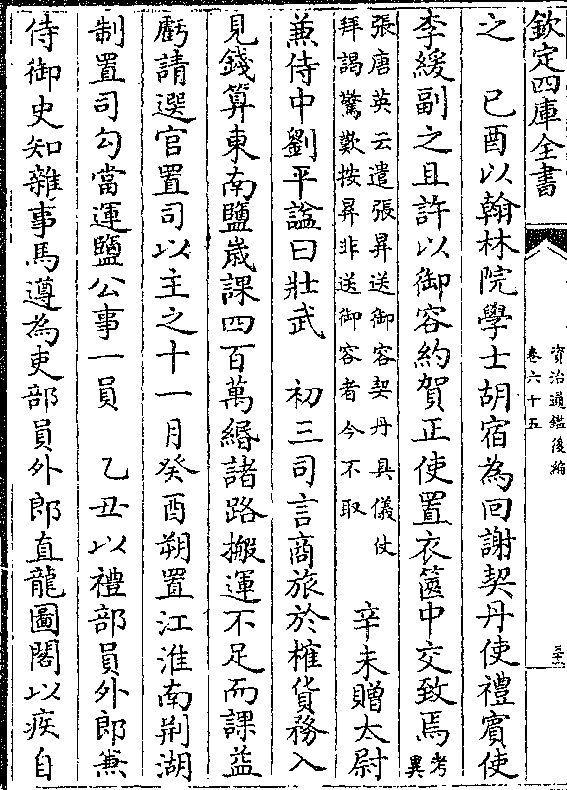 欽定四庫全書
資治通鑑後編
卷六十五
之　己酉以翰林院學士胡宿為回謝契丹使禮賓使
李綬副之且許以御容約賀正使置衣篋中交致焉考異
張唐英云遣張昇送御容契丹具儀仗
拜謁驚歎按昇非送御容者今不取
辛未贈太尉
兼侍中劉平諡曰壯武　初三司言商旅於榷貨務入
見錢算東南鹽歲課四百萬緡諸路搬運不足而課益
虧請選官置司以主之十一月癸酉朔置江淮南荆湖
制置司勾當運鹽公事一員　乙丑以禮部員外郎兼
侍御史知雜事馬遵為吏部員外郎直龍圖閣以疾自